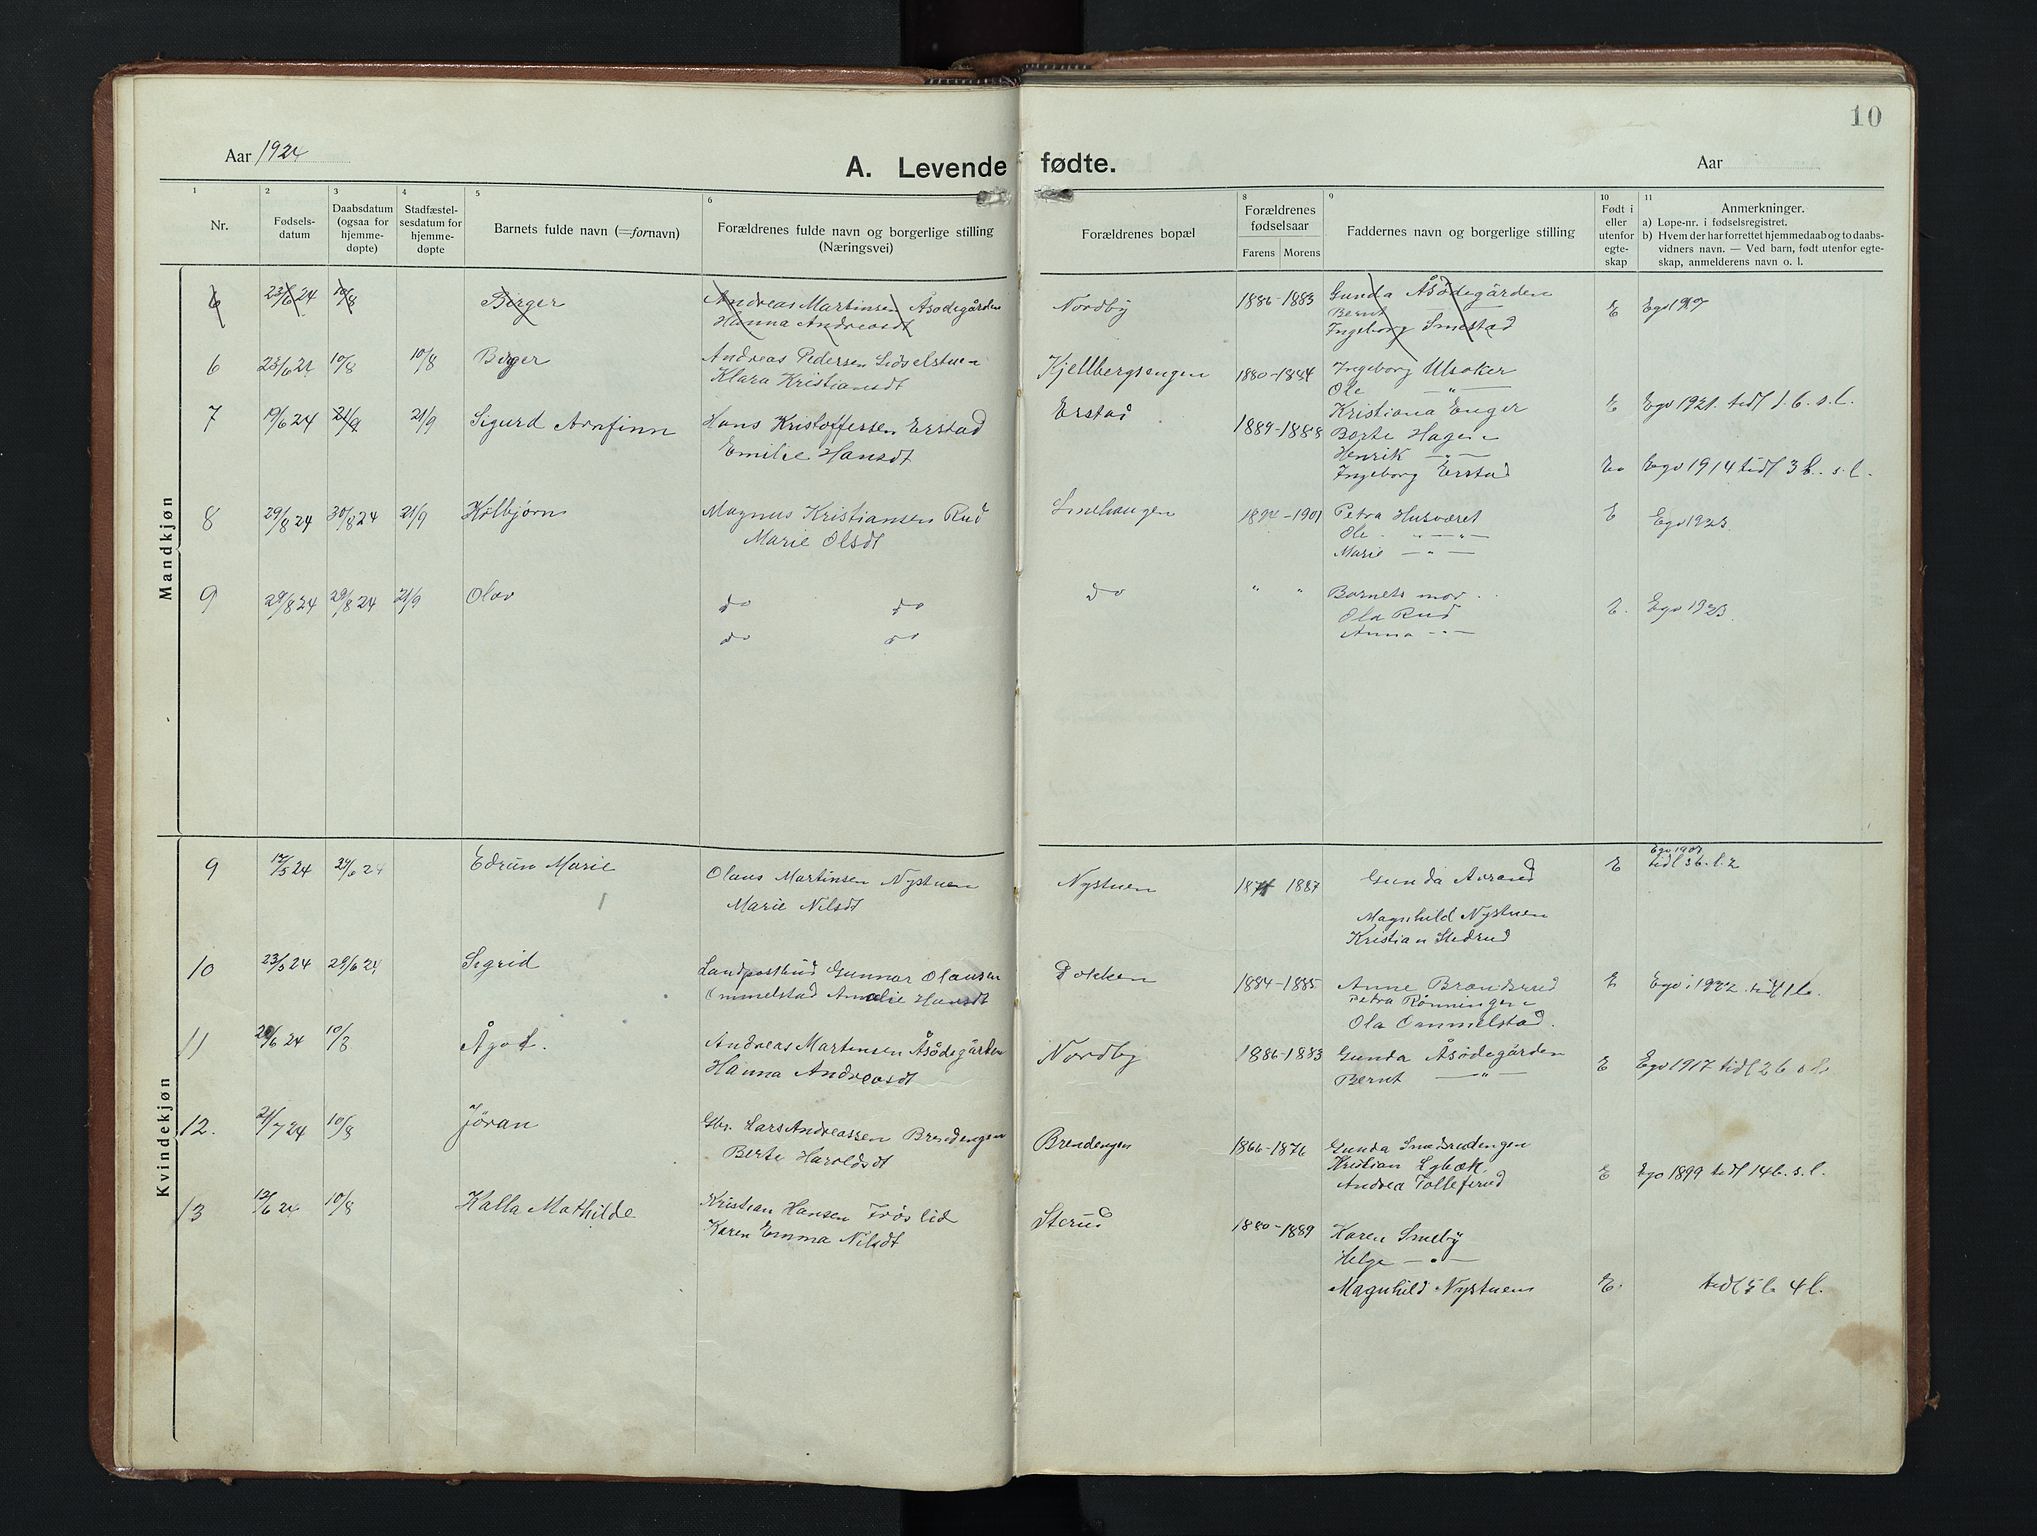 10
Aar 1924
A. Levende fødte.
Aar
1 2 3 4 5 6 8 9 10 11
Nr.
Fødsels-
datum
Daabsdatum
(ogsaa for
hjemme-
døpte)
Stadfæstel-
sesdatum for
hjemme-
døpte
Barnets fulde navn (=fornavn)
Forældrenes fulde navn og borgerlige stilling
(Næringsvei)
Forældrenes bopæl
Forældrenes
fødselsaar
Farens Morens
Faddernes navn og borgerlige stilling
Født i
eller
utenfor
egte-
skap
Anmerkninger.
a) Løpe-nr. i fødselsregistret.
b) Hvem der har forrettet hjemmedaab og to daabs-
vidners navn. — Ved barn, født utenfor egte-
skap, anmelderens navn o. l.
Mandkjøn
6 23/6 24 10/8 Birger Andreas Martinsen Åsødegården Nordby 1886-1883 Gunda Åsødegården E
Hanna Andreasdt Bernt
Ingeborg Smestad
6 23/6 24 10/8 10/8 Birger Andreas Pedersen Kjellbergsengen 1880-1884 Ingeborg Ulsaker
Klara Kristiansdt Ole — " —
Kristiana Enger E Egv 1921 tidl 1 b. s. l.
7 19/6 24 21/9 21/9 Sigurd Arnfinn Hans Kristoffersen Erstad Erstad 1889-1888 Berte Hagen
Emilie Hansdt Henrik — " —
Ingeborg Erstad E Egv 1914 tidl 3 b. s. l.
8 29/8 24 30/8 24 21/9 Kolbjørn Magnus Kristiansen Rud Linhaugen 1894-1901 Petra Husværet E Egv 1923
Marie Olsdt Ole — " —
Marie — " —
9 29/8 24 29/8 24 21/9 Olav do do do " " Barnets mor
do do Ola Rud E. Egv 1923
Anna — " —
Kvindekjøn
9 17/5 24 29/6 24 Edrun Marie Olaus Martinsen Nystuen Nystuen 1887 Gunda E Egv 1907
tidl 3 b. l. 2
Marie Nilsdt Magnhild Nystuen
Kristian Stedrud
10 23/5 24 29/6 24 Sigrid Landpostbud Gunnar Olausen Dokken 1884-1885 Anne E Egv i 1922 tidl 1 b.
Ommelstad Amalie Hansdt Petra Rønningen
Ola Ommelstad.
11 6 24 10/8 Ågot. Andreas Martinsen Åsødegården Nordby 1886-1883 Gunda Åsødegården E Egv 1917 tidl 2 b s l.
Hanna Andreasdt Bernt — " —
12. 21/7 24 10/8 Jöran Gbr. Lars Andreassen Brendengen Brendengen 1866-1876 Gunda Smedsrudengen
Berte Haroldsdt Kristian Lybæk
Andrea Tollefsrud E Egv 1899 tidl 14 b. s. l.
13 13/6 24 10/8 Kalla Mathilde Kristian Hansen Frøslid Sterud 1880-1889 Karen Smeby
Karen Emma Nilsdt Helge — " —
Magnhild Nystuen E. tidl 5 b 4 l.